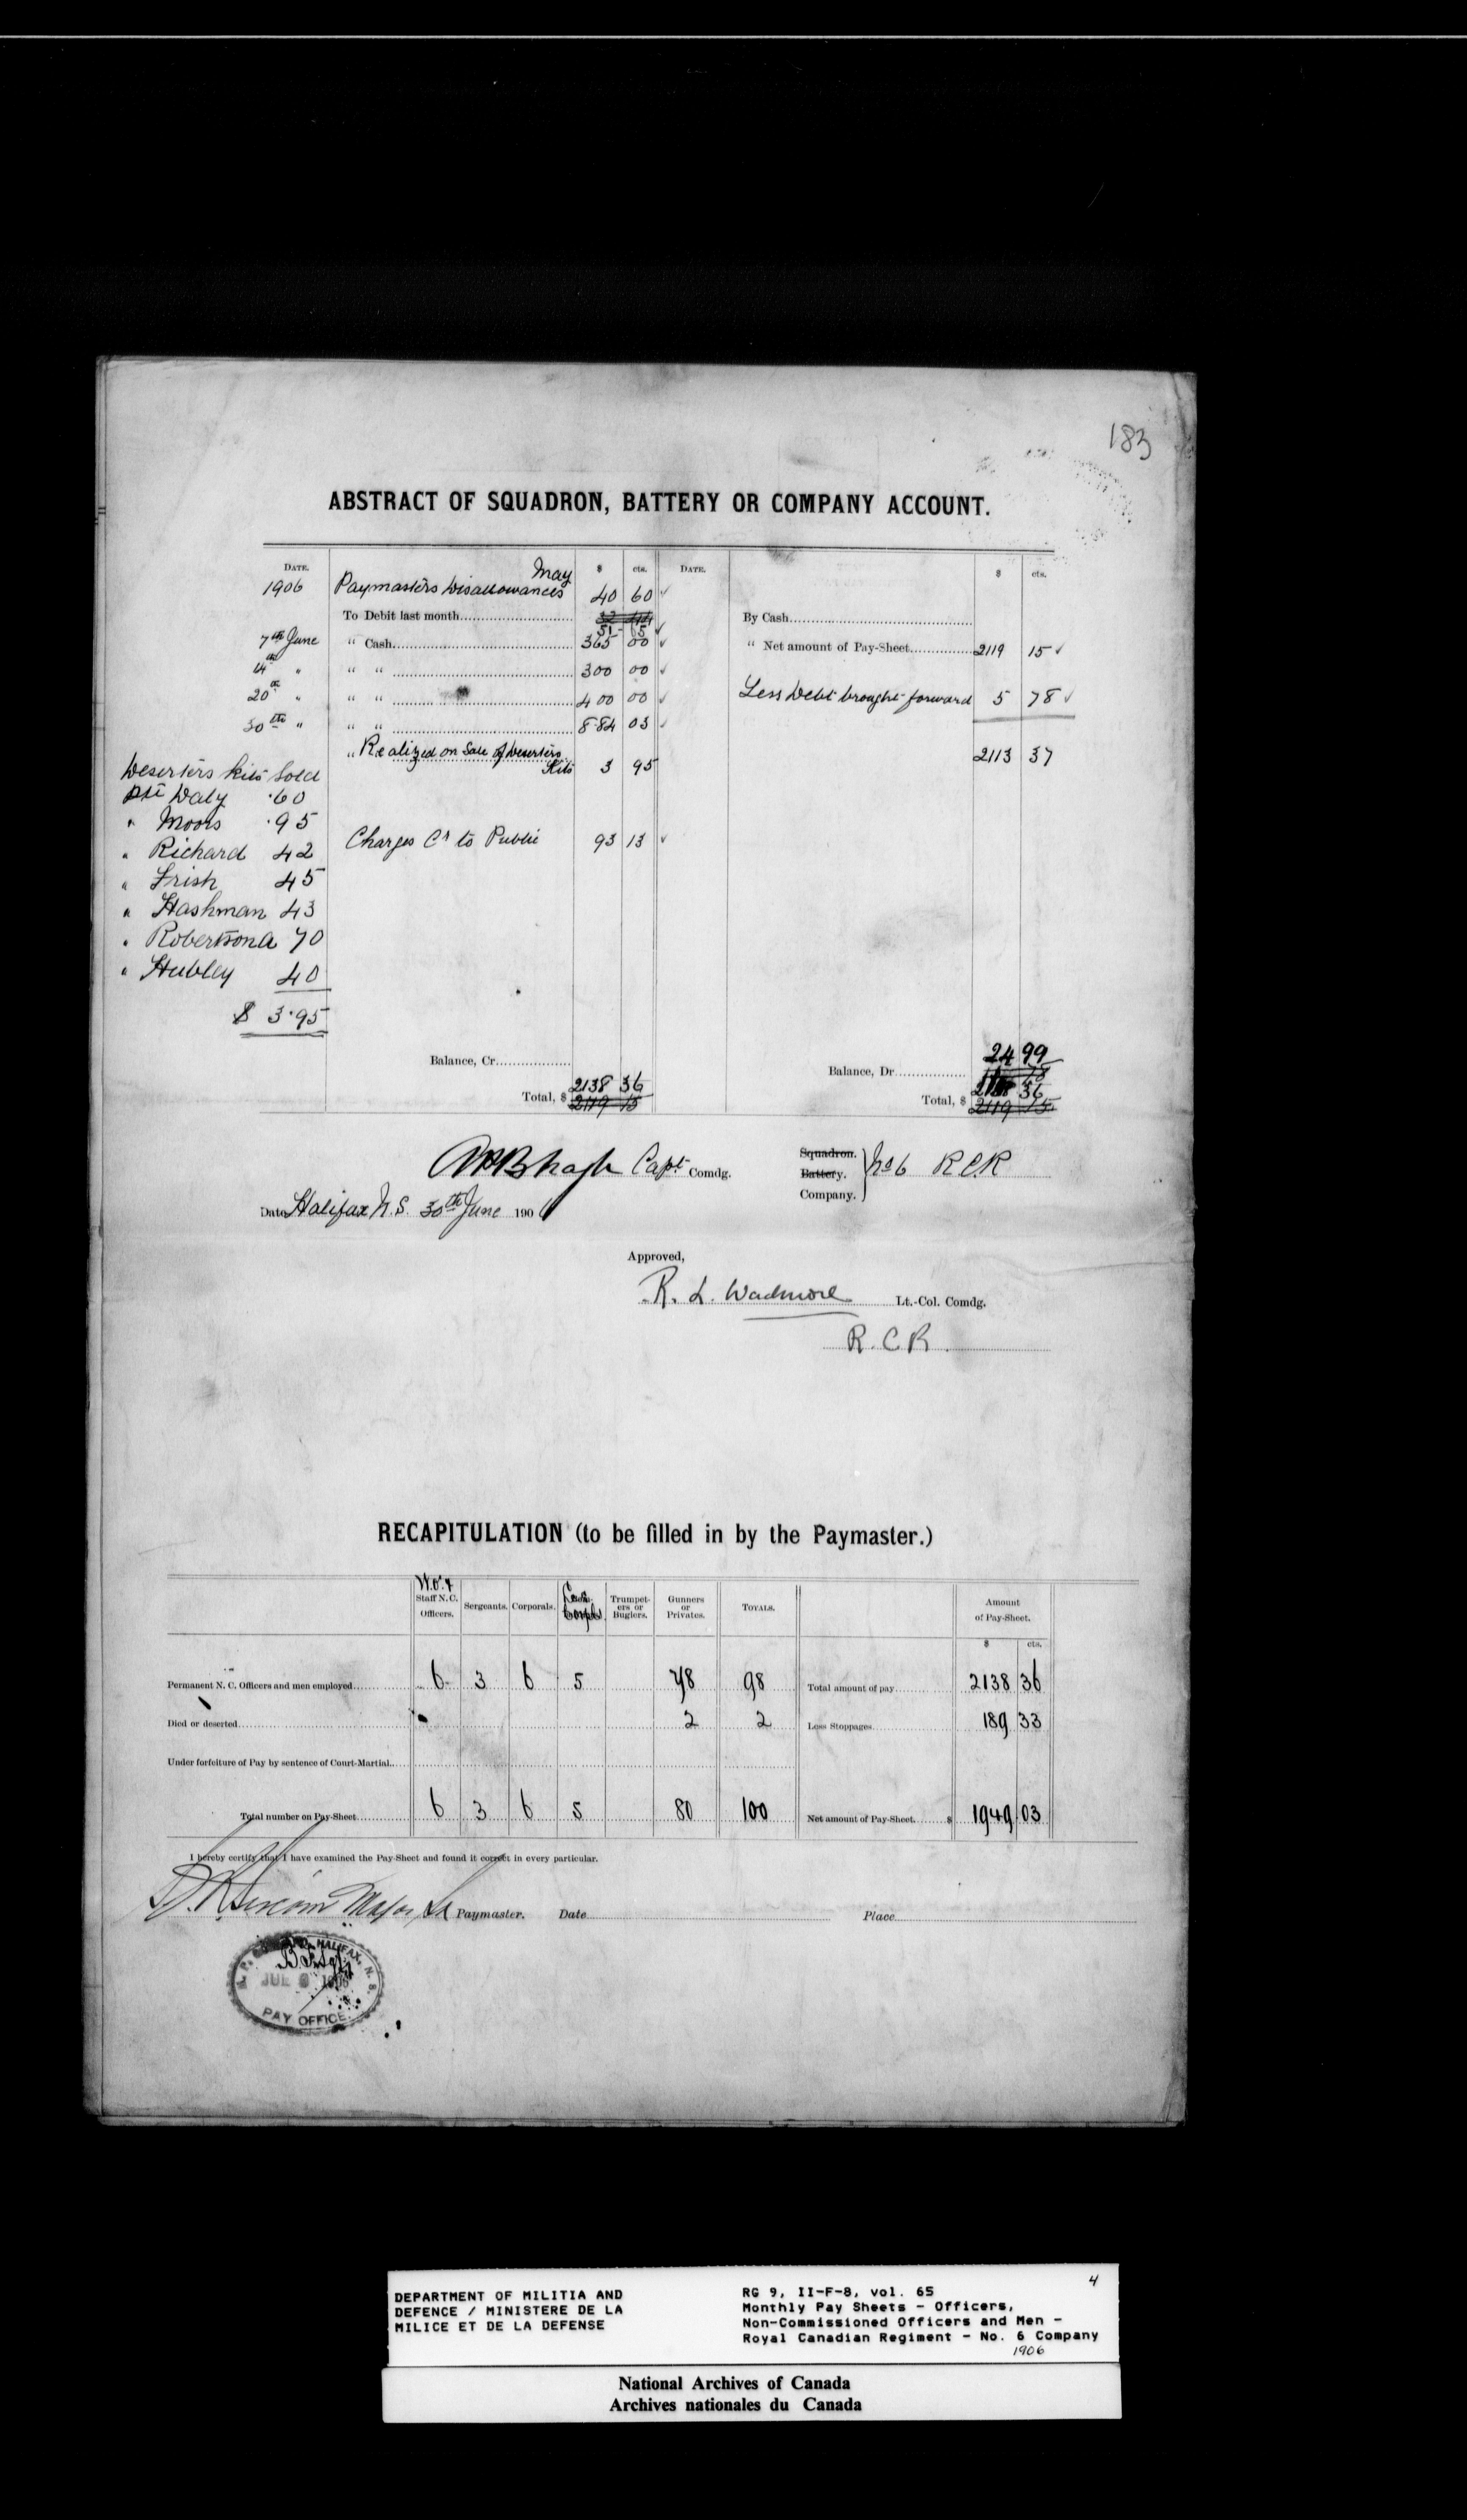 183
ABSTRACT OF SQUADRON, BATTERY OR COMPANY ACCOUNT.
DATE. $ cts. DATE. $ cts.
1906 Paymasters Disallowances May 40 60
To Debit last month 51 15 By Cash
7th June " Cash 365 00 " Net amount of Pay-Sheet 2119 15
14th " " " 300 00
20th " " " 400 00 Less Debt brought forward 5 78
30th " " " 884 03
" Realized on Sale of Deserters Kits 3 95 2113 37
Deserters Kits Sold
Pte Daly .60
" Moors .95
" Richard 42 Charges Cr to Public 93 13
" Frish 45
" Hashman 43
" Robertson A 70
" Hubley 40
$ 3.95
Balance, Cr. Balance, Dr. 24 99
Total, $ 2138 36 Total, $ 2138 36
2119 15 2119 15
Capt Comdg. Squadron. Battery. Company. No 6 RCR
Date Halifax N.S. 30th June 1906
Approved,
R. L. Wadmore Lt.-Col. Comdg.
R.C.R.
RECAPITULATION (to be filled in by the Paymaster.)
W.O. & Staff N.C. Officers. Sergeants. Corporals. Lance Corpls. Trumpeters or Buglers. Gunners or Privates. TOTALS. Amount of Pay-Sheet.
$ cts.
Permanent N. C. Officers and men employed 6 3 6 5 78 98 Total amount of pay 2138 36
Died or deserted 2 2 Less Stoppages 189 33
Under forfeiture of Pay by sentence of Court-Martial
Total number on Pay-Sheet 6 3 6 5 80 100 Net amount of Pay-Sheet $ 1949 03
I hereby certify that I have examined the Pay-Sheet and found it correct in every particular.
Major Paymaster. Date Place
HALIFAX, N. S.
JUL 1906
PAY OFFICE.
DEPARTMENT OF MILITIA AND
DEFENCE / MINISTERE DE LA
MILICE ET DE LA DEFENSE
RG 9, II-F-8, vol. 65 4
Monthly Pay Sheets - Officers,
Non-Commissioned Officers and Men -
Royal Canadian Regiment - No. 6 Company
1906
National Archives of Canada
Archives nationales du Canada